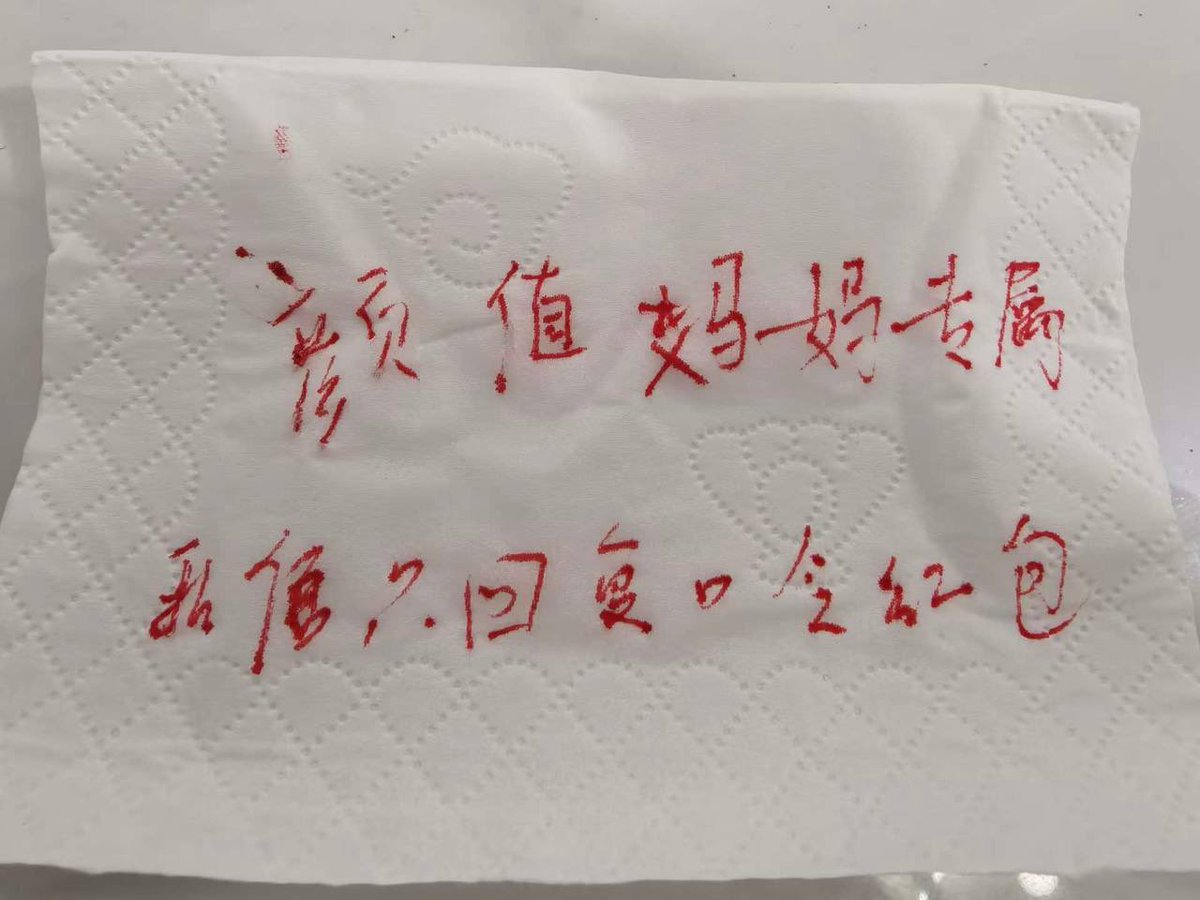 颜值妈妈专属
私信只回复口令红包